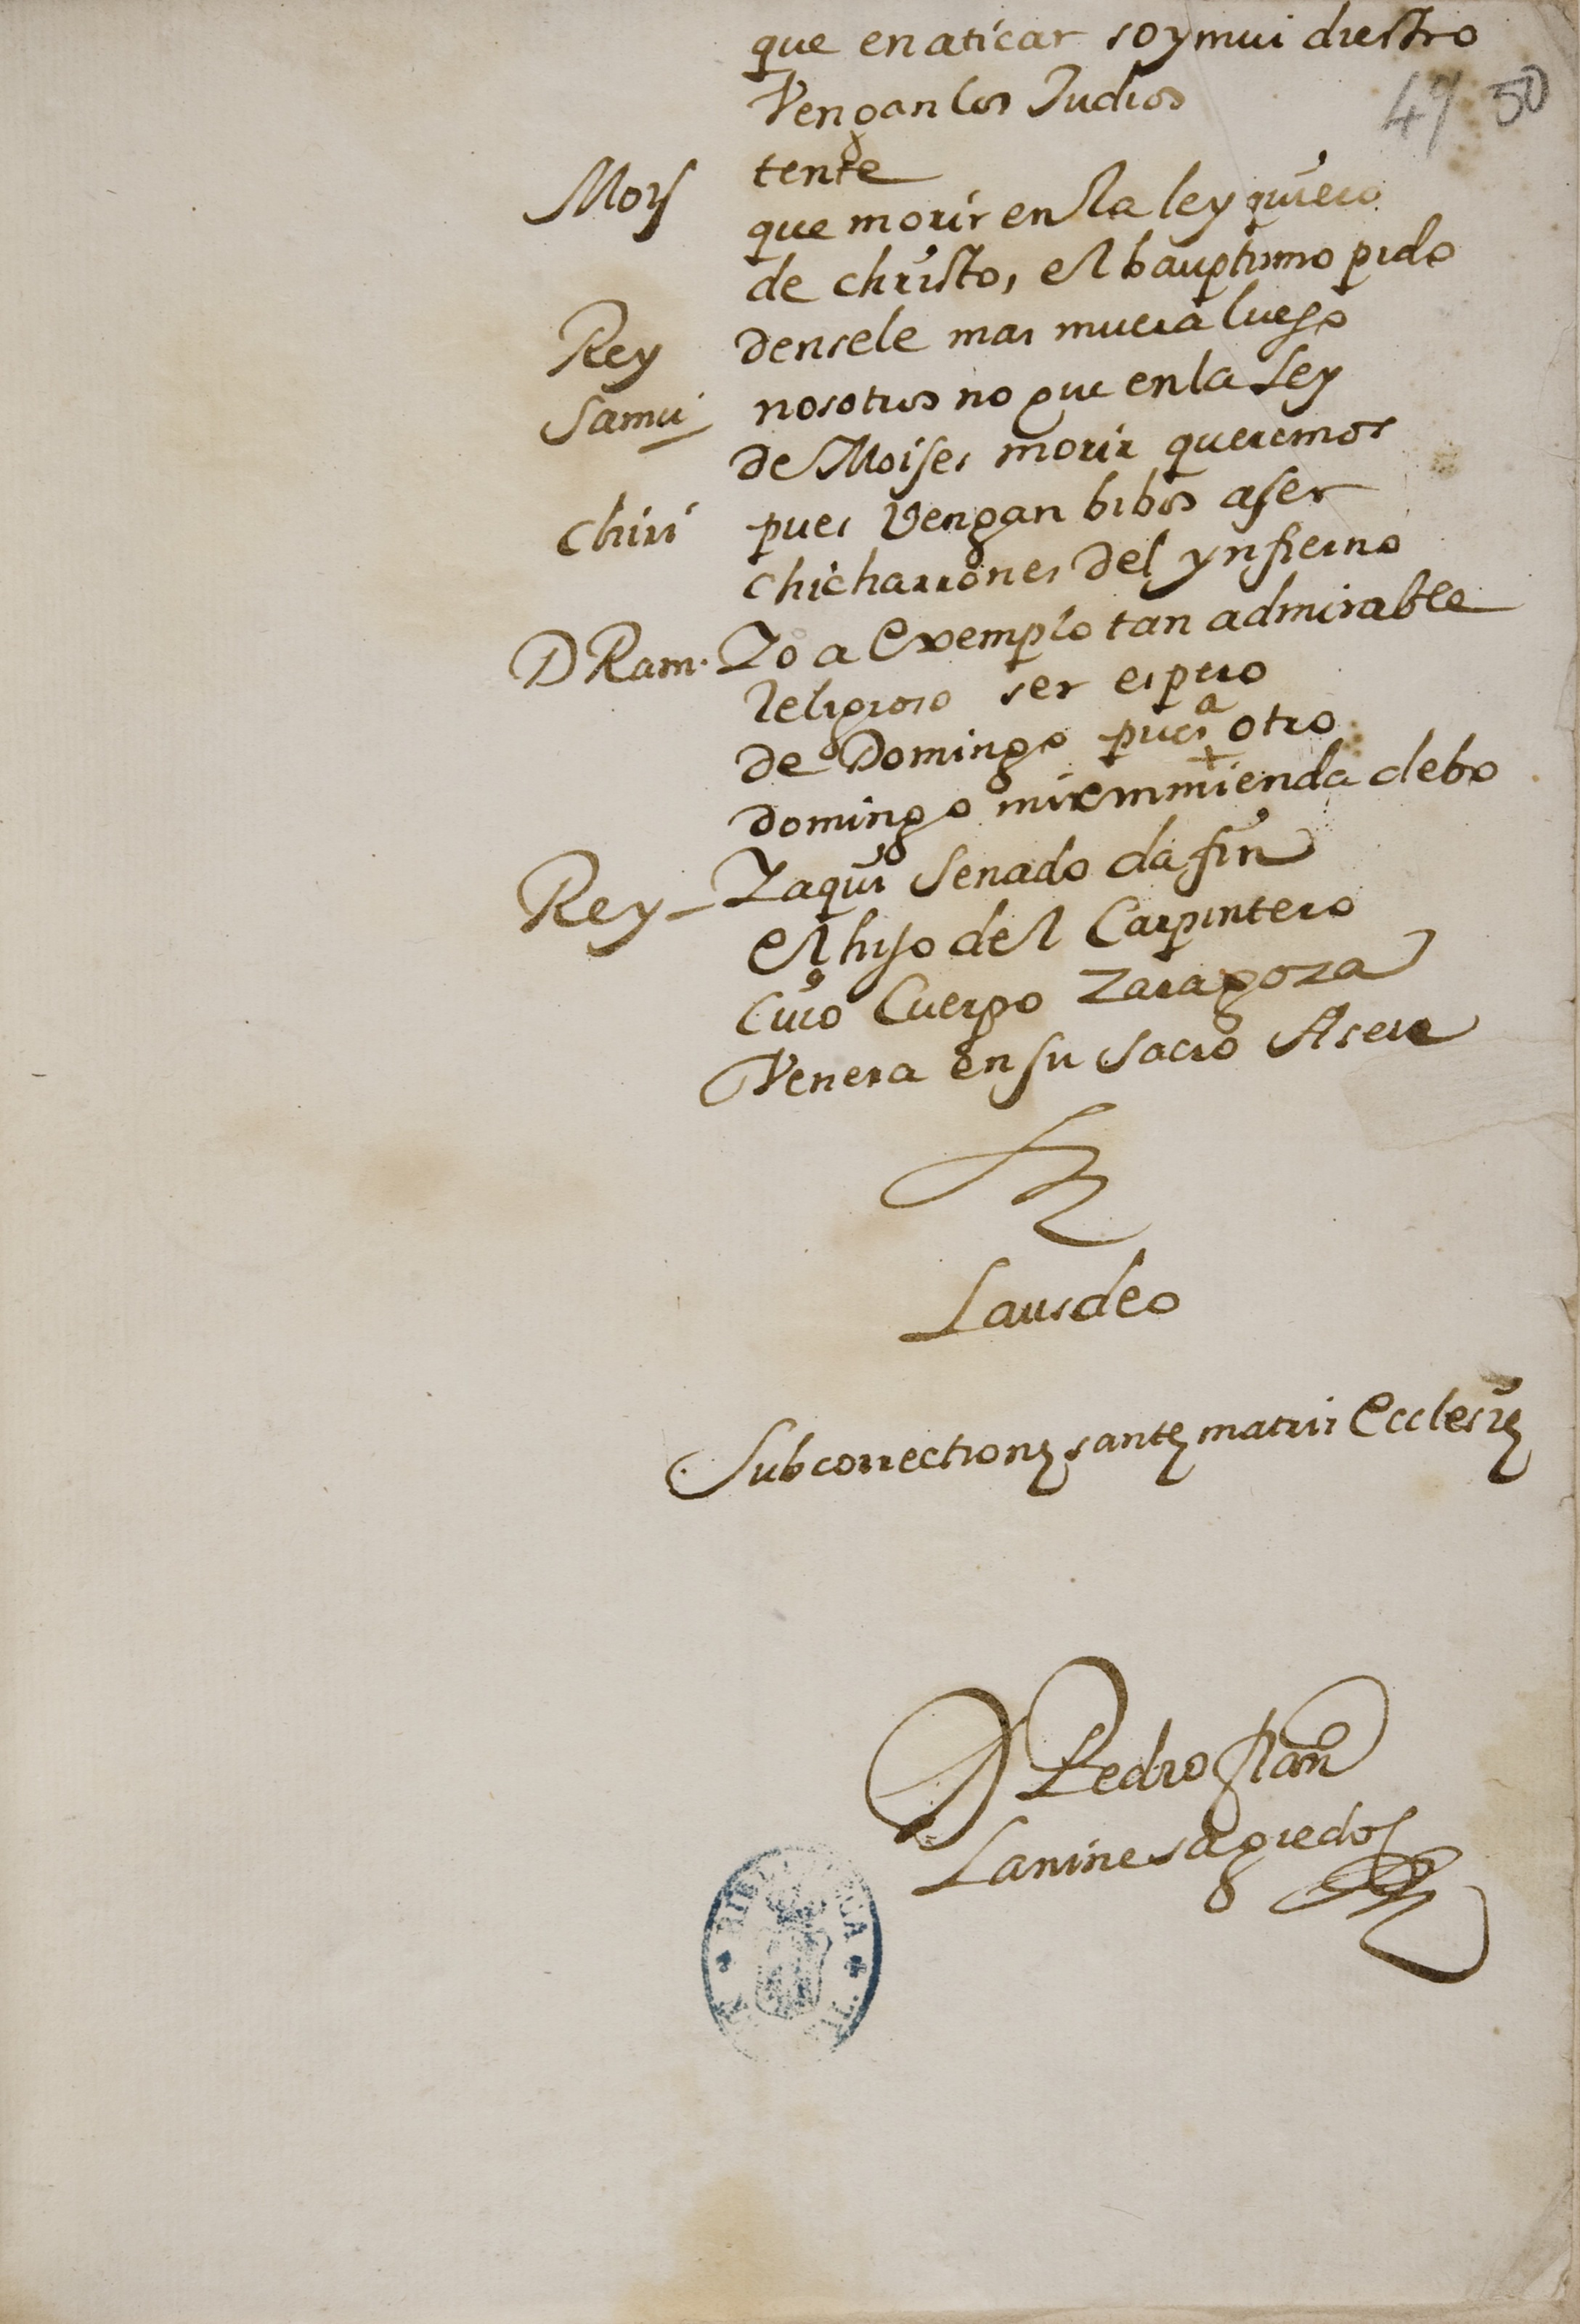 que en aticar soy mui diestro
Vengan los Judios
49 50
Moys tente
que morir en la ley quiero
de christo, el bauptismo pido
Rey densele mas muera luego
Samu nosotros no que en la Ley
de Moises morir queremos
chiri pues Vengan bibos a ser
chicharrones del ynfierno
D Ram. Io a exemplo tan admirable
Religioso ser espero
de Domingo pues a otro
domingo mi enmienda debo
Rey Iaqui Senado da fin
el hijo del Carpintero
Cuio Cuerpo Zaragoza
Venera en su sacro Aseo
Laus deo
Sub correctione sante matris Ecclesie
D Pedro fran
Lanine sagredo
BIBLIOTECA